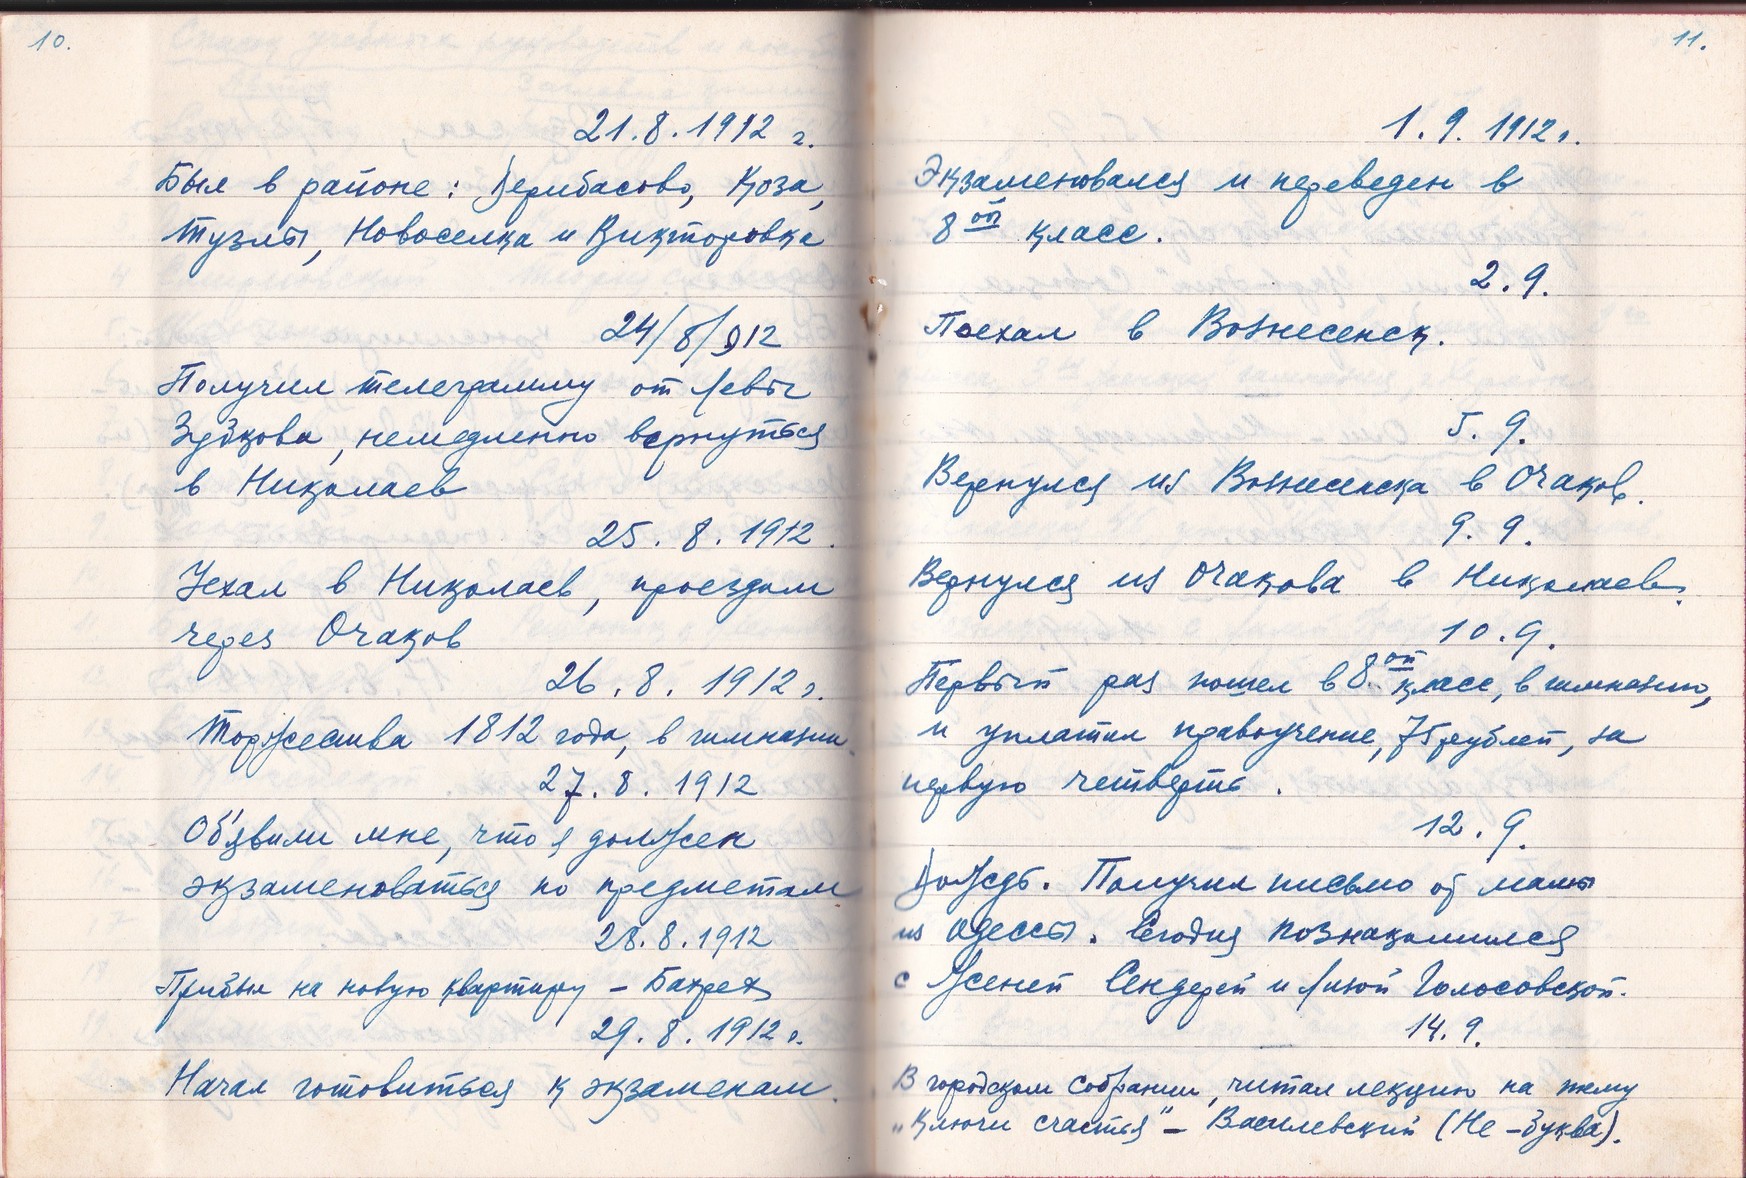 10.
21.8.1912 г.
Был в районе: Дерибасово, Коза,
Тузлы, Новоселка и Викторовка
24/8/912
Получил телеграмму от Левы
Зубкова, немедленно вернуться
в Николаев
25. 8. 1912.
Уехал в Николаев, проездом
через Очаков
26. 8. 1912 г.
Торжества 1812 года, в гимназии.
27. 8. 1912
Об'явили мне, что я должен
экзаменоваться по предметам
28.8.1912
Прибыл на новую квартиру – Бахрех
29. 8. 1912 г.
Начал готовиться к экзаменам.
11.
1. 9. 1912 г.
Экзаменовался и переведен в
8ой класс.
2. 9.
Поехал в Вознесенск.
5. 9.
Вернулся из Вознесенска в Очаков.
9. 9.
Вернулся из Очакова в Николаев.
10. 9.
Первый раз пошел в 8ой класс, в гимназию,
и уплатил правоучение, 75 рублей, за
первую четверть.
12. 9.
Дождь. Получил письмо от мамы
из Одессы. Сегодня познакомился
с Женей Сендерей и Лизой Голосовской.
14. 9.
В городском собрании, читал лекцию на тему
„Ключи счастья" – Василевский (Не-Буква).